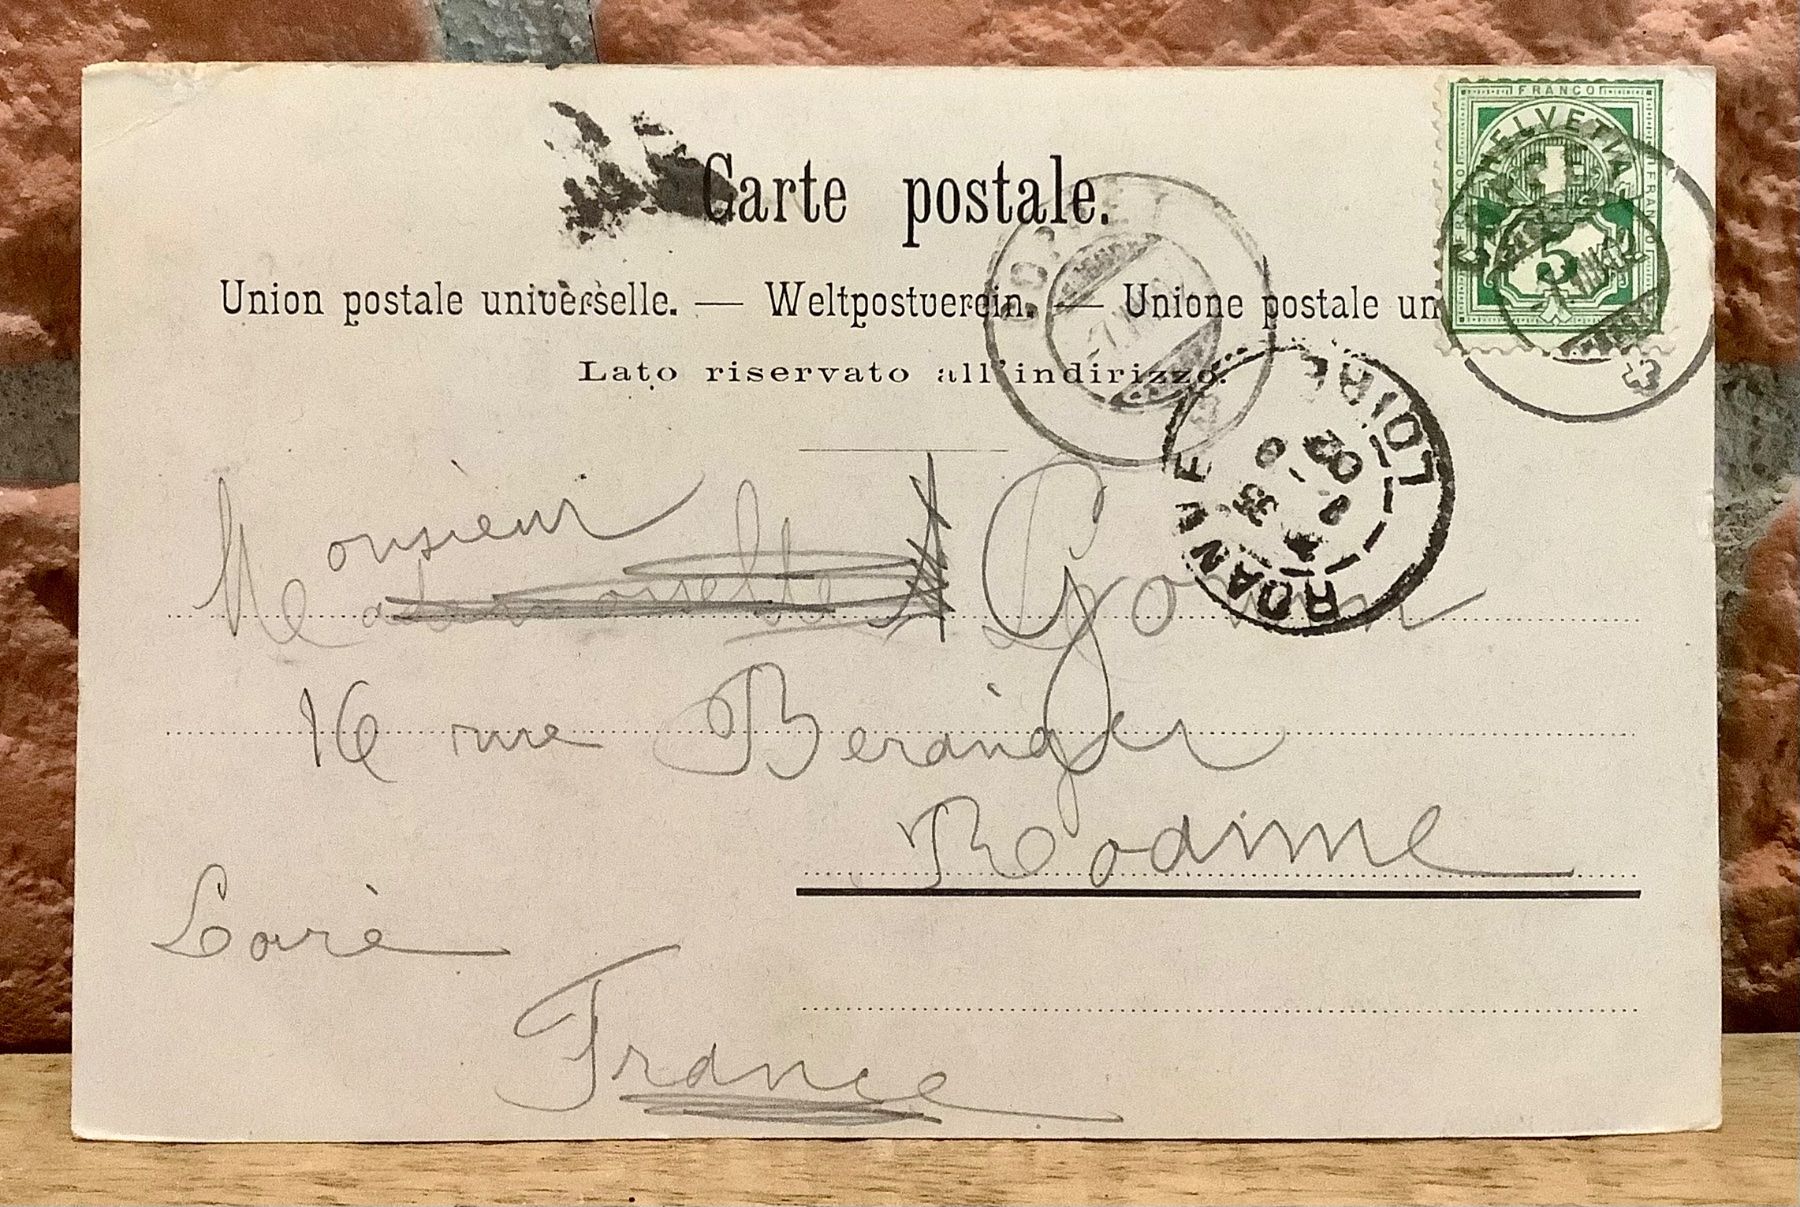 FRANCO
HELVETIA
5
Carte postale.
COPPET
Union postale universelle. — Weltpostverein. — Unione postale un
Lato riservato all'indirizzo.
ROANNE LOIRE
02
Monsieur
Mademoiselle A Gonin
16 rue Beranger
Roanne
Loire
France